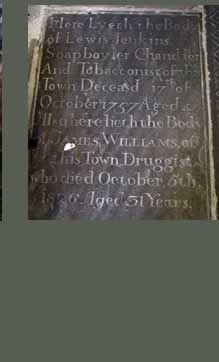 Here Lyeth the Body
of Lewis Jenkins
Soapboyler Chandler
And Tobacconist of this
Town Deceasd 17th of
October 1757 Aged
Also here lieth the Body
of JAMES WILLIAMS, of
this Town Druggist
who died October 5th,
1826 Aged 31 Years.